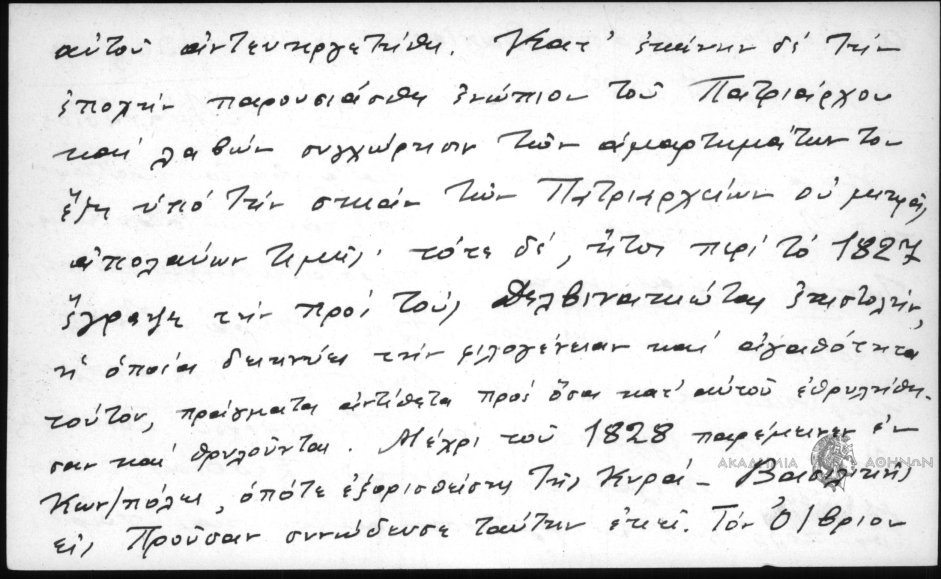 αὐτοῦ ἀντευηργετήθη. Κατ' ἐκείνην δέ τήν
ἐποχήν παρουσιάσθη ἐνώπιον τοῦ Πατριάρχου
καί λαβών συγχώρησιν τῶν ἁμαρτημάτων του
ἔζη ὑπό τήν σκιάν τῶν Πατριαρχείων οὐ μικρᾶς
ἀπολαύων τιμῆς· τότε δέ, ἤτοι περί τό 1827
ἔγραψε τήν πρός τούς Δελβινακιώτας ἐπιστολήν,
ἡ ὁποία δεικνύει τήν φιλογένειαν καί ἀγαθότητα
τούτου, πράγματα ἀντίθετα πρός ὅσα κατ' αὐτοῦ ἐθρυλήθη-
σαν καί θρυλοῦνται. Μέχρι τοῦ 1828 παρέμεινεν ἐν
Κων/πόλει, ὁπότε ἐξορισθείσης τῆς Κυρά - Βασιλικῆς
εἰς Προῦσαν συνώδευσε ταύτην ἐκεῖ. Τόν Ὀ/βριον
ΑΚΑΔΗΜΙΑ ΑΘΗΝΩΝ